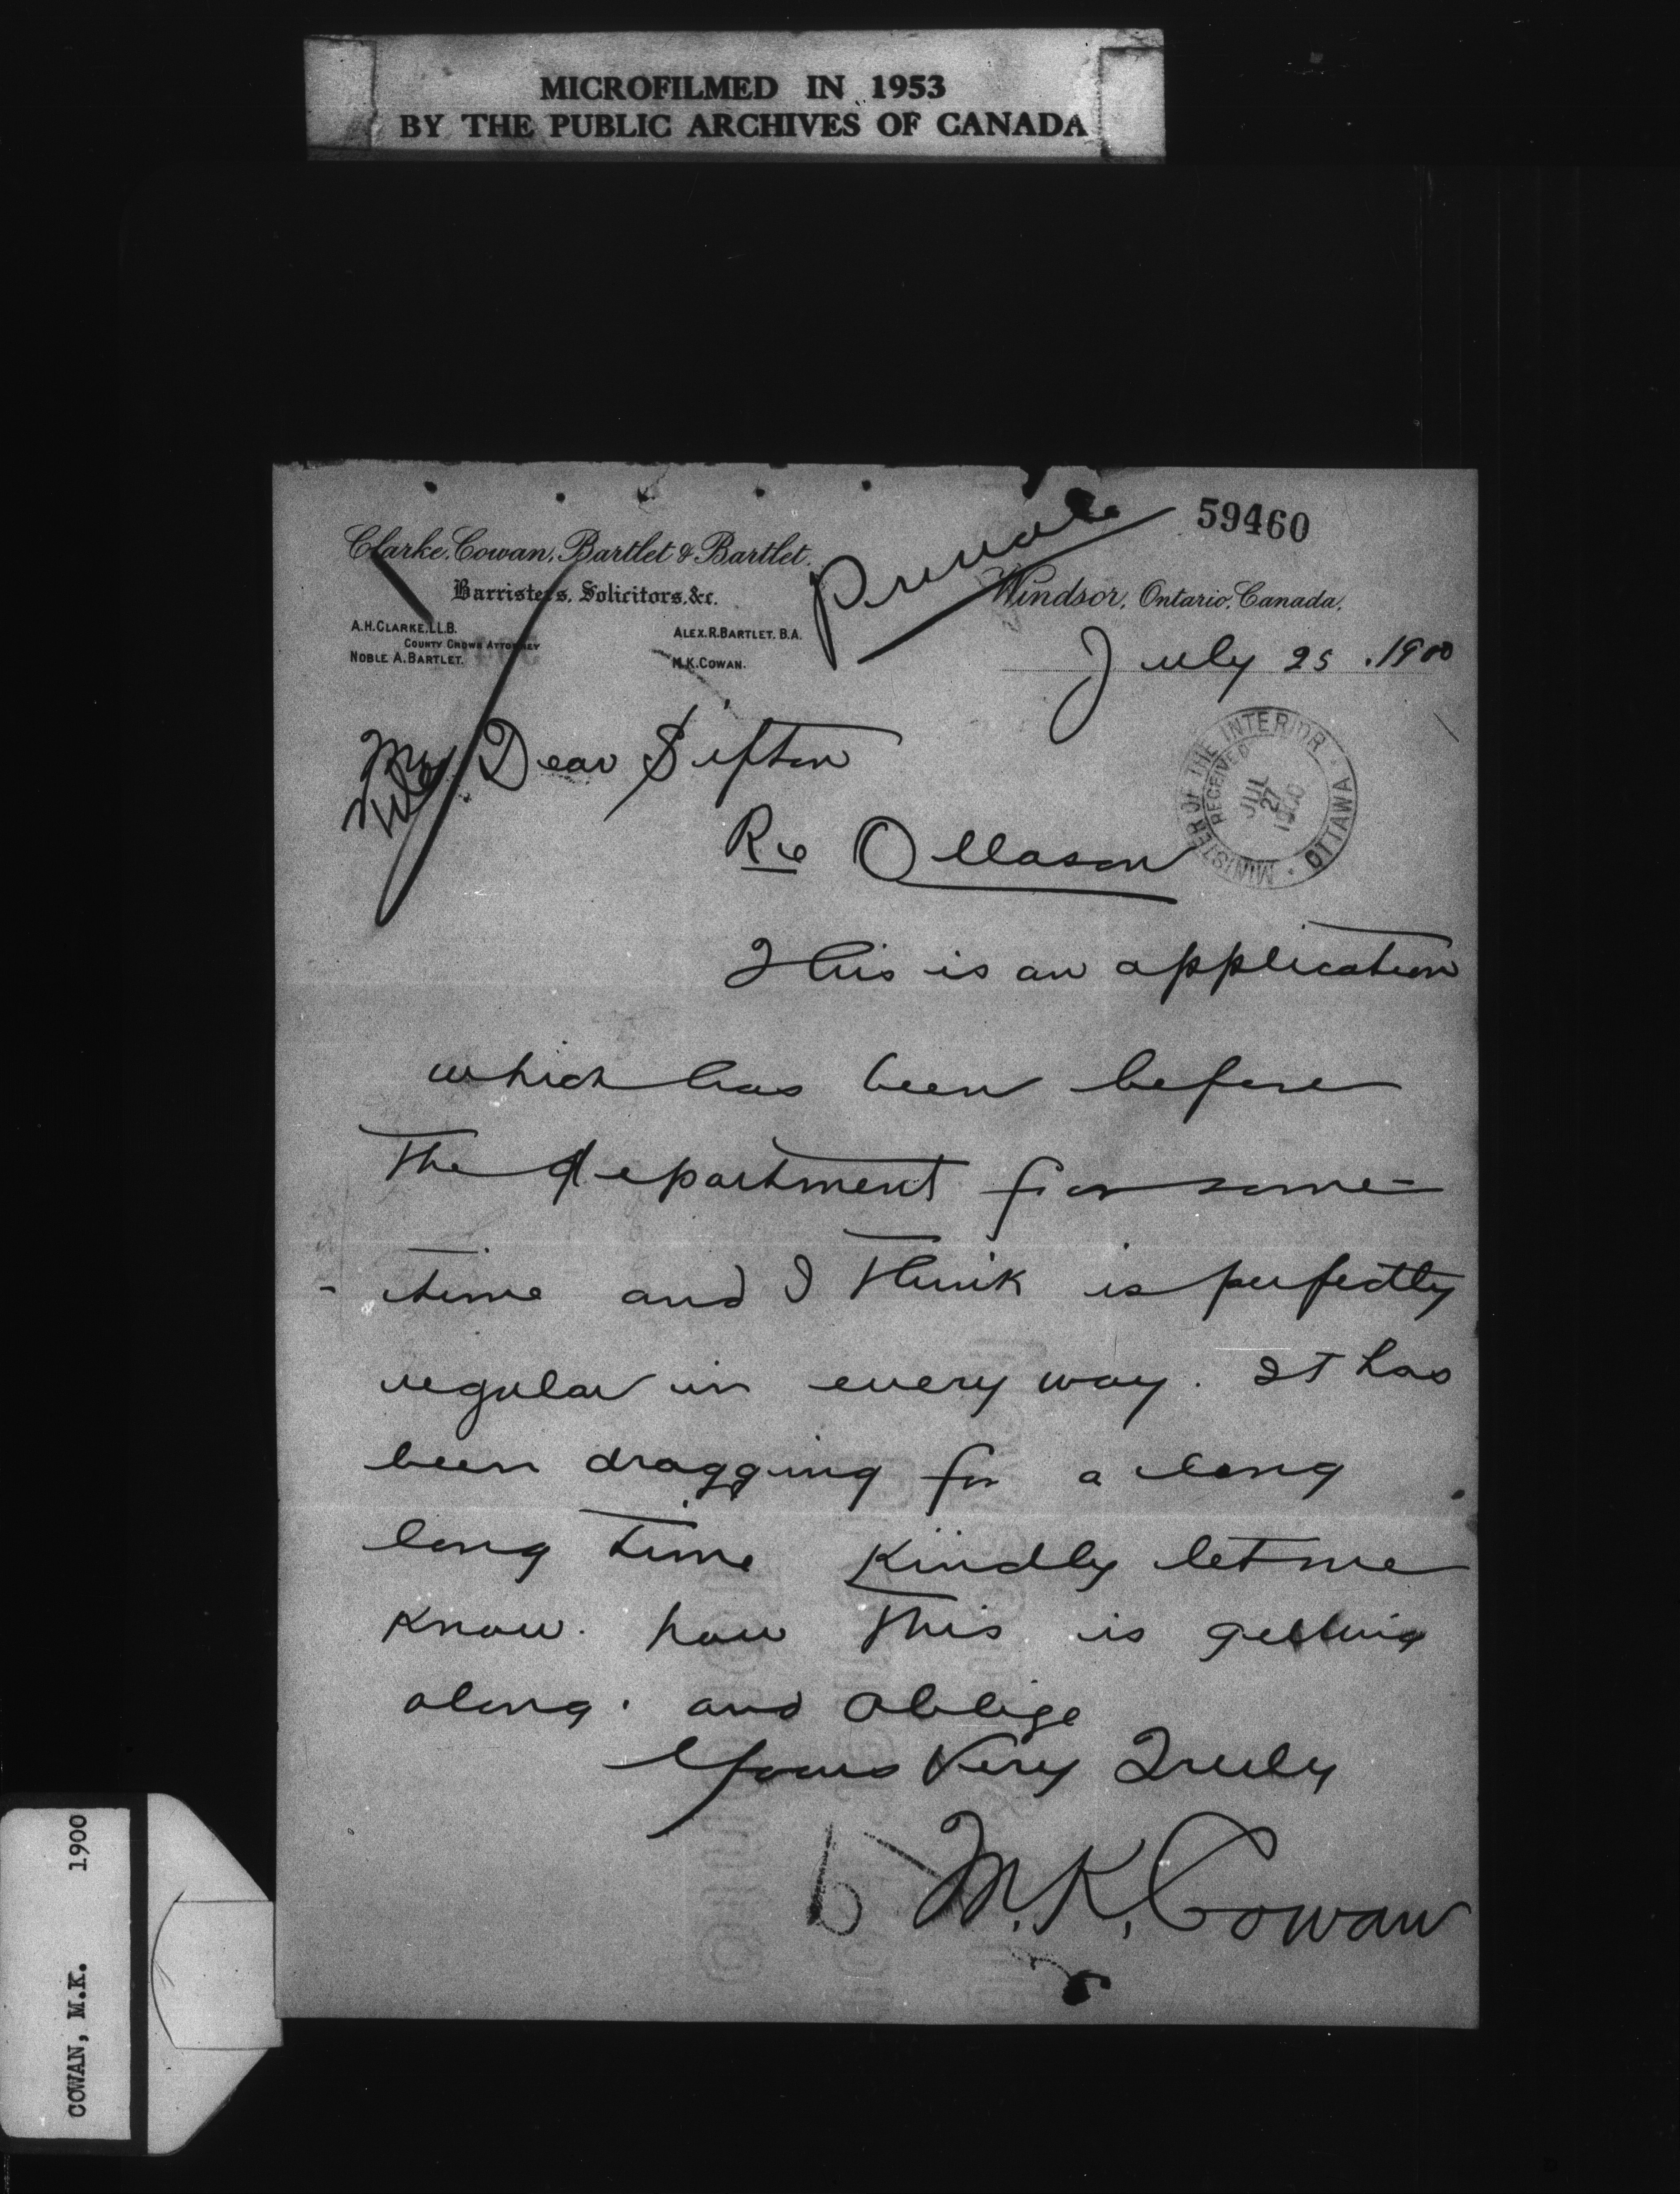 MICROFILMED IN 1953
BY THE PUBLIC ARCHIVES OF CANADA
59460
Clarke, Cowan, Bartlet & Bartlet.
Barristers, Solicitors, &c.
Private
Windsor, Ontario, Canada,
A.H. CLARKE, LL.B.
COUNTY CROWN ATTORNEY
NOBLE A. BARTLET.
ALEX. R. BARTLET. B.A.
M.K. COWAN.
July 25, 1900
My Dear Sifton
File
MINISTER OF THE INTERIOR · OTTAWA ·
RECEIVED
JUL
27
1900
Re Ollason
This is an application
which has been before
the department for some
time and I think is perfectly
regular in every way. It has
been dragging for a long
long time Kindly let me
know. how this is getting
along. and oblige
Yours Very Truly
M.K. Cowan
COWAN, M.K. 1900